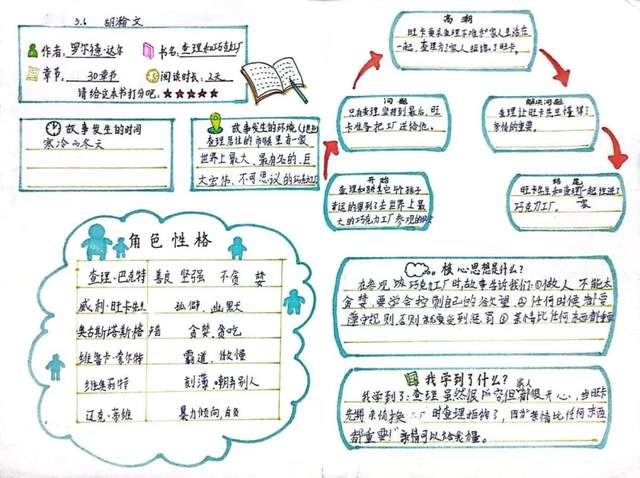 3.6 胡瀚文
作者: 罗尔德·达尔
书名: 查理和巧克力工厂
章节: 30章节
阅读时长: 2天
请给这本书打分吧。★★★★★
故事发生的时间
寒冷的冬天
故事发生的环境
查理居住的市镇里有一家
世界上最大、最有名的、巨
大宏伟、不可思议的巧克力工厂
高潮
旺卡要求查理不准和家人生活在
一起,查理为了家人拒绝了旺卡。
问题
只有查理坚持到最后,旺
卡准备把工厂送给他。
解决问题
查理让旺卡先生懂得了
亲情的重要。
开始
查理和其它4个孩子
幸运的得到了去世界上最
大的巧克力工厂参观的
结尾
旺卡先生和查理一起住进了
巧克力工厂。
角色性格
查理·巴克特 善良 坚强 不贪婪
威利·旺卡先生 孤僻、幽默
奥古斯塔斯 贪婪、贪吃
维鲁卡·索尔特 霸道、傲慢
维奥莉特 刻薄、嘲弄别人
迈克·蒂维 暴力倾向、自负
核心思想是什么?
在参观 巧克力工厂时,故事告诉我们:①做人 不能太
贪婪,要学会控制自己的欲望。②任何时候都要
遵守规则,否则就要受到惩罚 ③亲情比任何东西都重要
我学到了什么?
我学到了:查理虽然很 但都很开心,当旺卡
先 用亲情换 工厂时查理拒绝了,因为亲情比任何东西
都重要,亲情可以给我 。